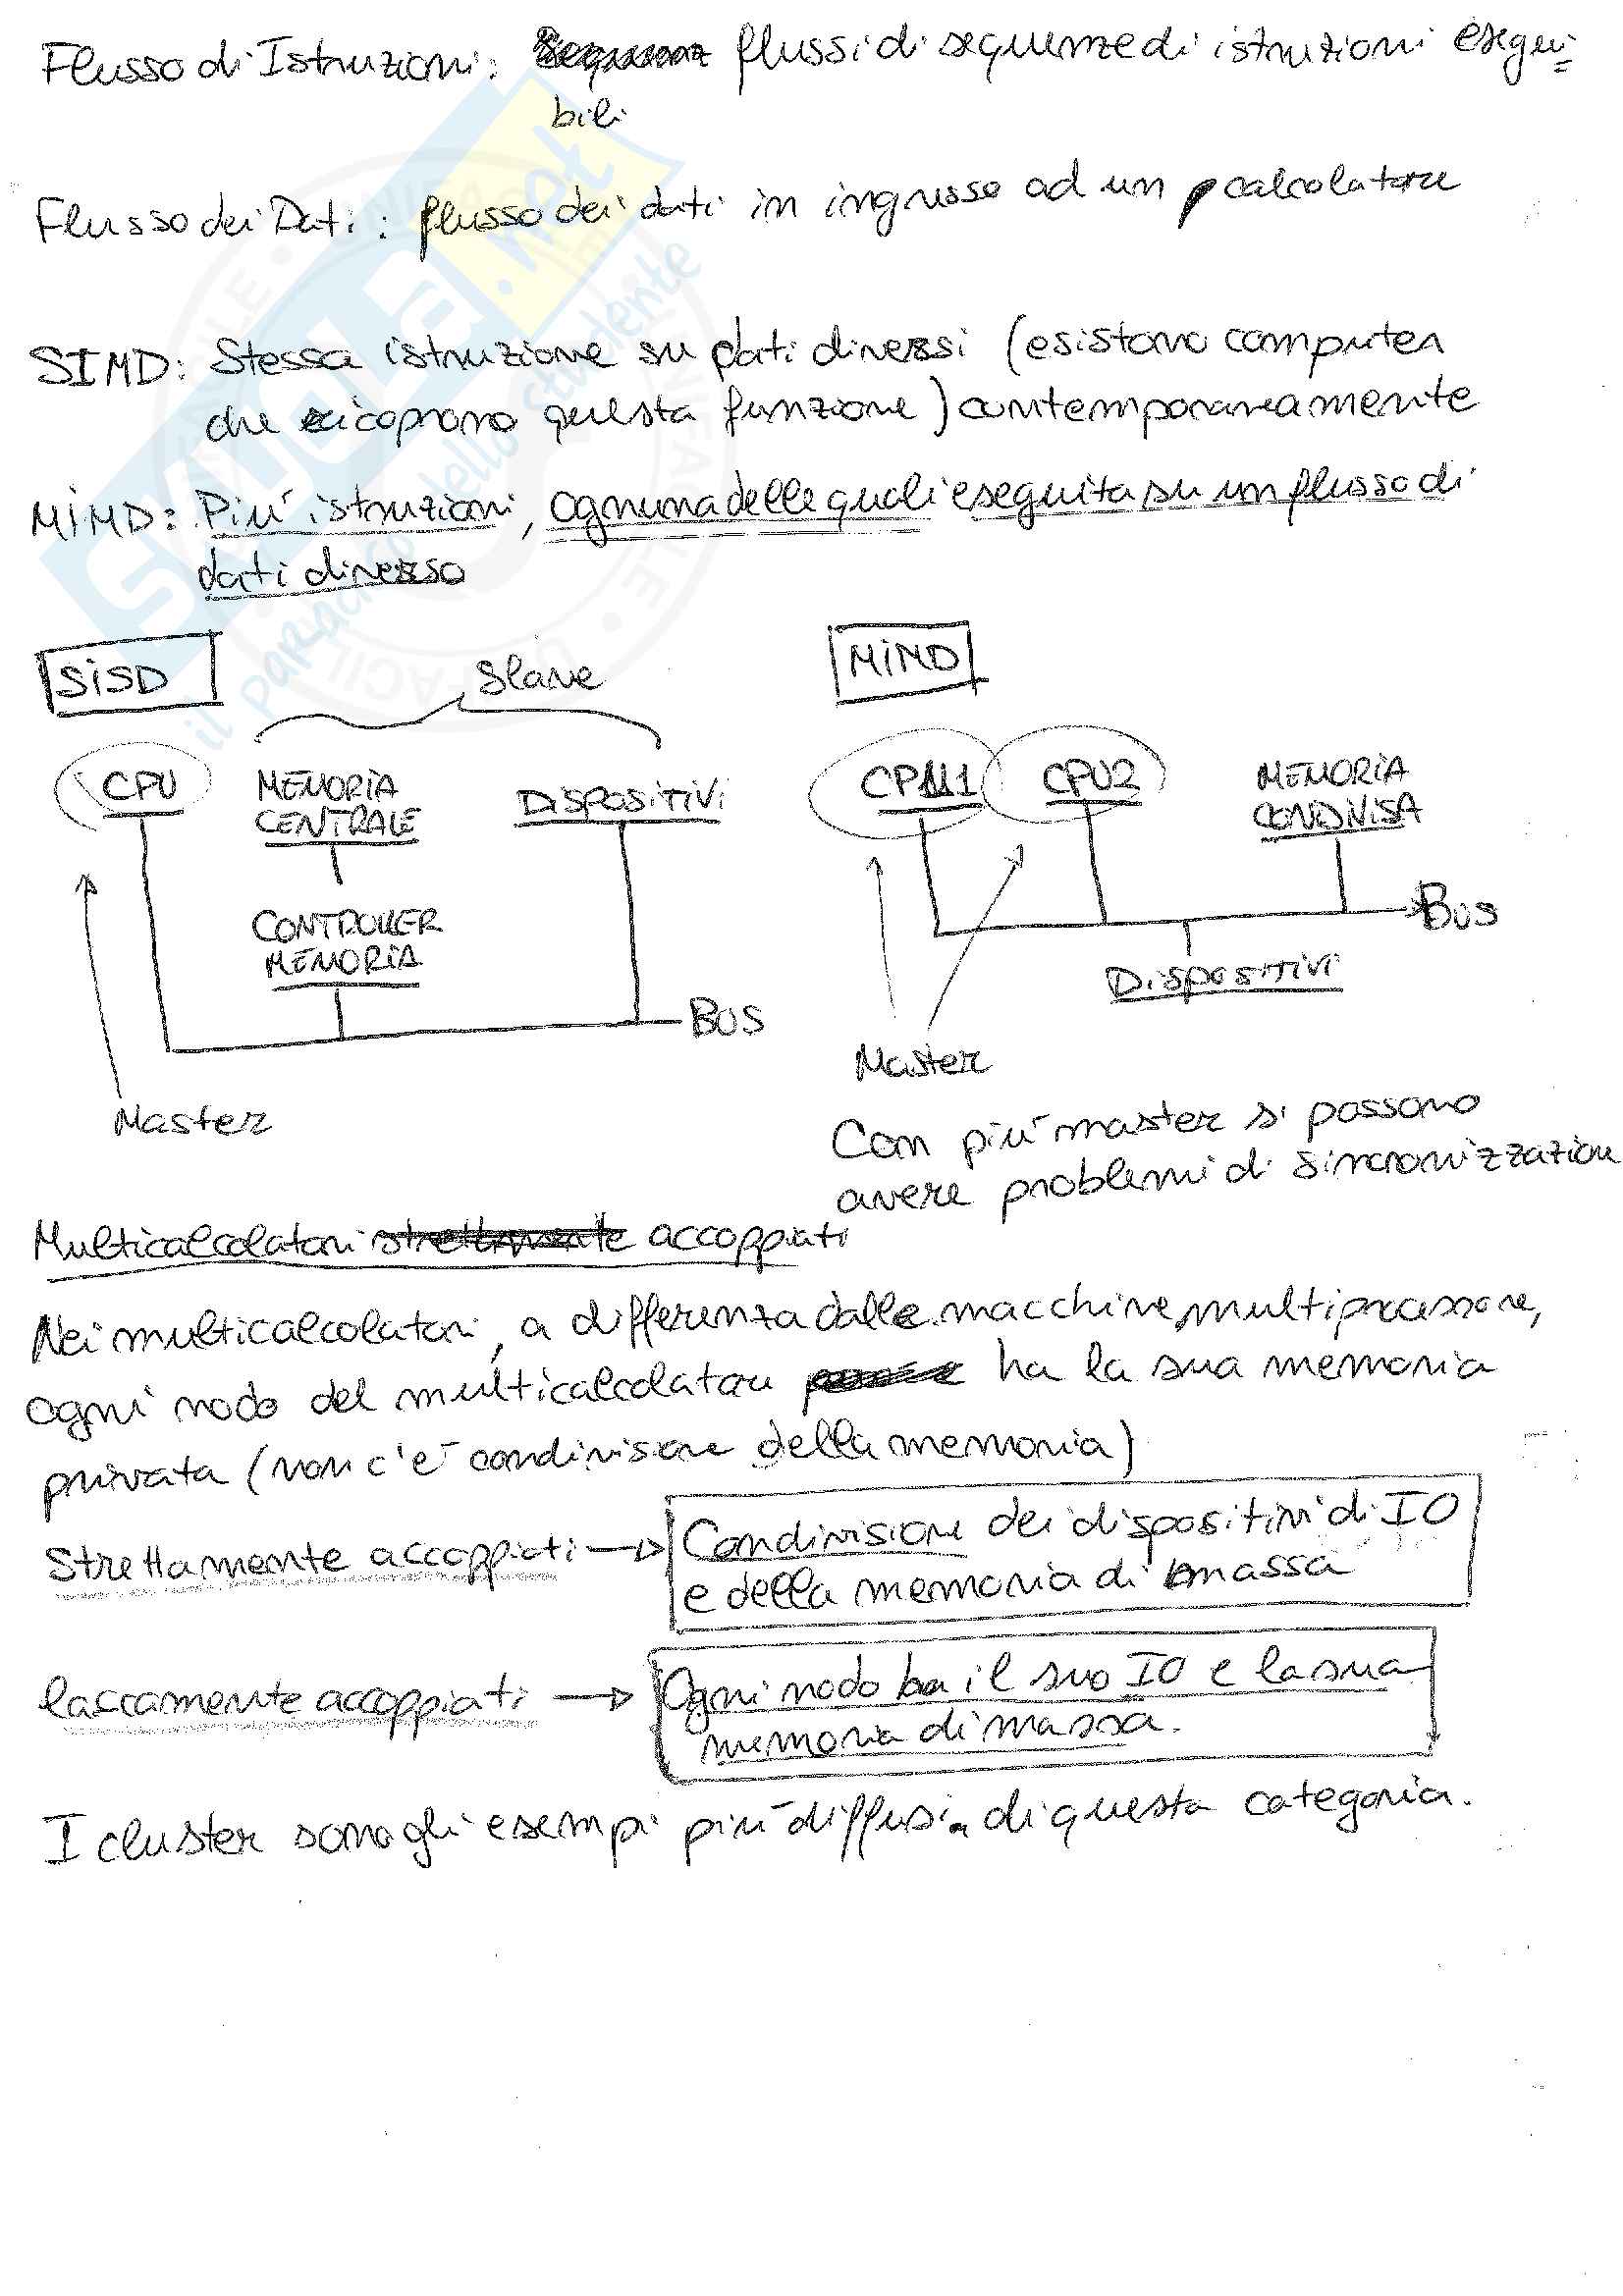 Flusso di Istruzioni: flussi di sequenze di istruzioni esegui=
bili
Flusso dei Dati: flusso dei dati in ingresso ad un calcolatore
SIMD: Stessa istruzione su dati diversi (esistono computer
che ricoprono questa funzione) contemporaneamente
MIMD: Più istruzioni, ognuna delle quali eseguita su un flusso di
dati diverso
SISD
Slave
CPU
MEMORIA
CENTRALE
DISPOSITIVI
CONTROLLER
MEMORIA
BUS
Master
MIMD
CPU1
CPU2
MEMORIA
CONDIVISA
BUS
DISPOSITIVI
Master
Con più master si possono
avere problemi di sincronizzazione
Multicalcolatori strettamente accoppiati
Nei multicalcolatori, a differenza dalle macchine multiprocessore,
ogni nodo del multicalcolatore ha la sua memoria
privata (non c'è condivisione della memoria)
Strettamente accoppiati → Condivisione dei dispositivi di IO
e della memoria di massa
lascamente accoppiati → Ogni nodo ha il suo IO e la sua
memoria di massa.
I cluster sono gli esempi più diffusi di questa categoria.
SKUOLA.net
il paradiso dello studente